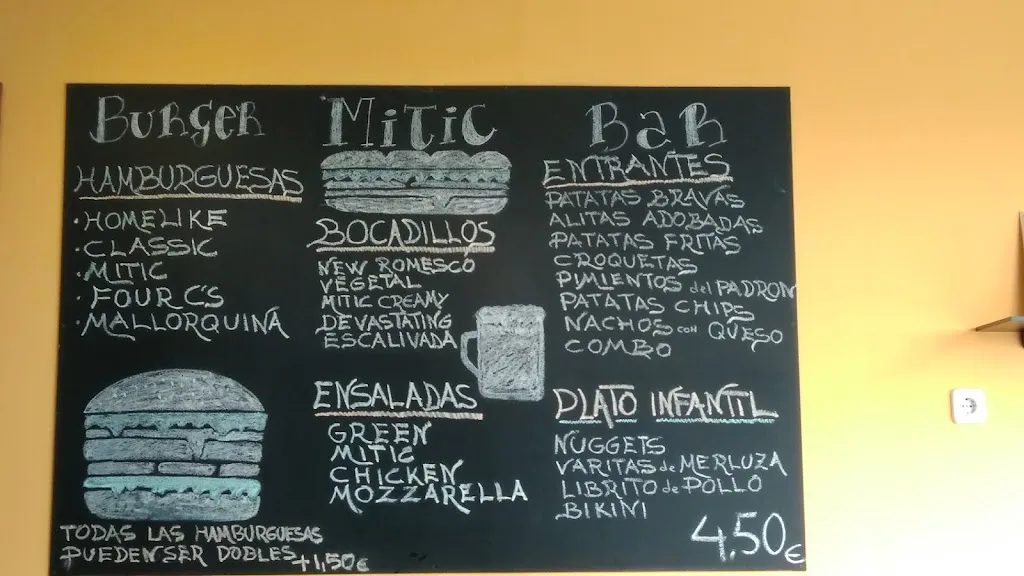 BURGER MITIC BAR
HAMBURGUESAS
·HOMELIKE
·CLASSIC
·MITIC
·FOUR C'S
·MALLORQUINA
TODAS LAS HAMBURGUESAS
PUEDEN SER DOBLES +1,50€
BOCADILLOS
NEW ROMESCO
VEGETAL
MITIC CREAMY
DEVASTATING
ESCALIVADA
ENSALADAS
GREEN
MITIC
CHICKEN
MOZZARELLA
ENTRANTES
PATATAS BRAVAS
ALITAS ADOBADAS
PATATAS FRITAS
CROQUETAS
PIMIENTOS del PADRON
PATATAS CHIPS
NACHOS con QUESO
COMBO
PLATO INFANTIL
NUGGETS
VARITAS de MERLUZA
LIBRITO de POLLO
BIKINI
4,50€